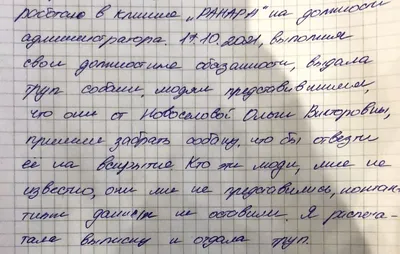 работаю в клинике „РАНАРА" на должности
администратора. 17.10.2021, выполняя
свои должностные обязанности, выдала
труп собаки, людям представившимися,
что они от Новоселовой Ольги Викторовны,
приехали забрать собаку, что бы отвезти
ее на вскрытие. Кто эти люди, мне не
известно, они мне не представились, контак-
тные данные не оставили. Я распеча-
тала выписку и отдала труп.